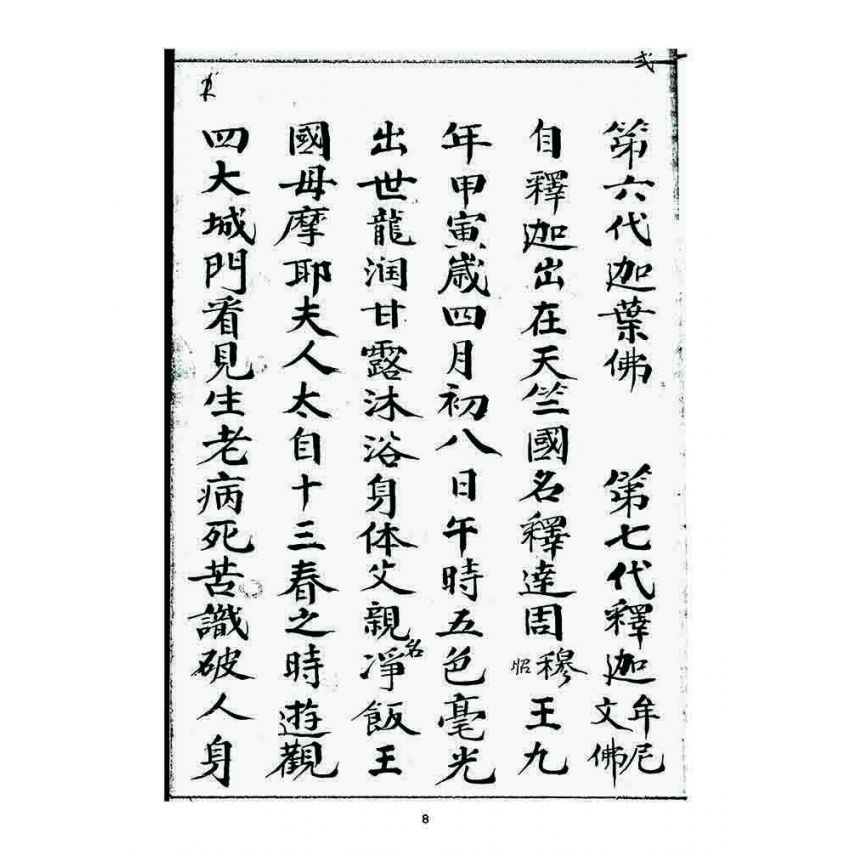 弍
第六代迦葉佛　第七代釋迦牟尼文佛
自釋迦出在天竺國名釋達周穆昭王九
年甲寅歲四月初八日午時五色毫光
出世龍润甘露沐浴身体父親名凈飯王
國母摩耶夫人太自十三春之時遊觀
四大城門看見生老病死苦識破人身
8